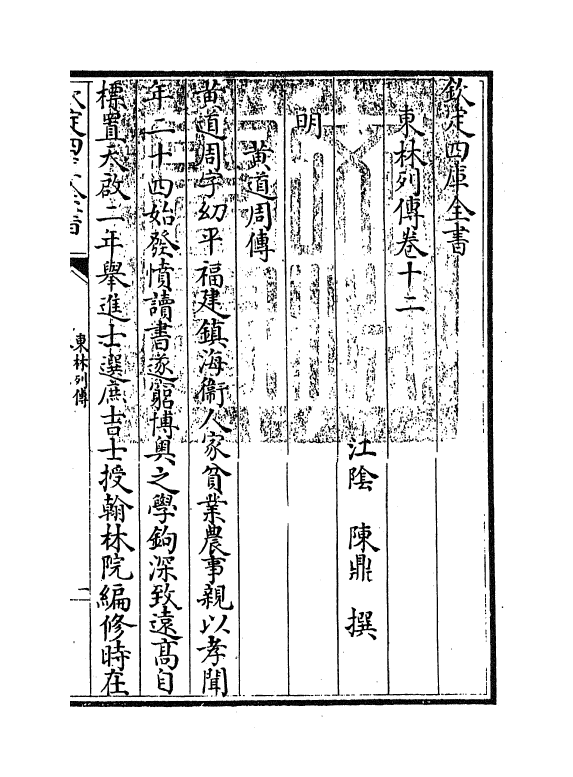 欽定四庫全書
東林列傳卷十二
江隂　陳鼎　撰
明
黃道周傳
黃道周字幼平福建鎮海衞人家貧業農事親以孝聞
年二十四始發憤讀書遂窮博奥之學鉤深致遠高自
標置天啟二年舉進士選庶吉士授翰林院編修時在
欽定四庫全書
東林列傳